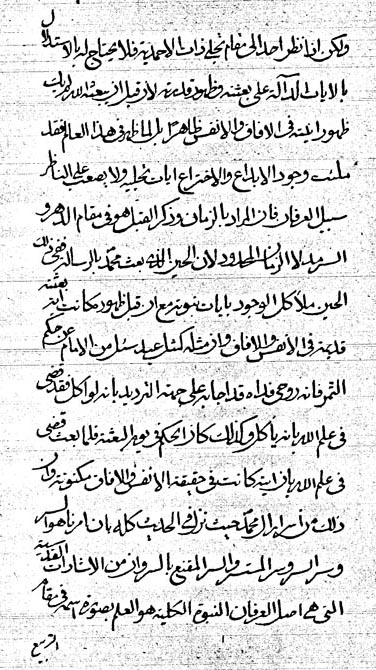 ولكن اذا نظر احد الى مقام تجلى ذات الاحدية فلا يحتاج له الاستدلال
بالايات الدالة على بعثته وظهور قدرته لان قبل ان يبعثه الله لم يك
ظهور ايته فى الافاق والانفس ظاهرا بل لما ظهر فى هذا العالم فقد
ملئت وجود الابداع والاختراع ايات تجليه ولا يصعب على الناظر
سبيل العرفان فان المراد بالزمان وذكر القبل هو فى مقام الدهر و
السرمد لا الزمان المحدود لان الحين الذى بعث محمد بالرسالة ففى ذلك
الحين ملأ كل الوجود بايات نبوته مع ان قبل ظهوره كانت اية بعثته
قديمة فى الانفس والافاق وان مثله كمثل عبد سئل من الامام عن حكم
الثمر فانه روحى فداه قد اجابه على جهة الترديد بانه لو اكل فقد قضى
فى علم الله بانه ياكل وكذلك كان الحكم فى يوم البعثة فلما بعث قضى
فى علم الله بان اية كانت فى حقيقة الانفس والافاق مكنونة وان
ذلك من اسرار ال محمد حيث نزل فى الحديث كله بان امرنا هو السر
وسر السر وسر المستسر والسر المقنع بالسر وان من الاشارات القدسية
التى هى اصل العرفان النبوة الكلية هو العلم بصورة اسمه فى مقام
التربيع